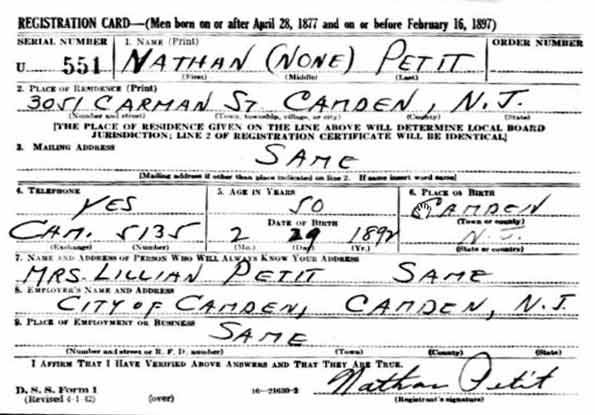 REGISTRATION CARD—(Men born on or after April 28, 1877 and on or before February 16, 1897)
SERIAL NUMBER 1. NAME (Print) ORDER NUMBER
U 551 NATHAN (NONE) PETIT
(First) (Middle) (Last)
2. PLACE OF RESIDENCE (Print)
3051 CARMAN ST. CAMDEN, N.J.
(Number and street) (Town, township, village, or city) (County) (State)
[THE PLACE OF RESIDENCE GIVEN ON THE LINE ABOVE WILL DETERMINE LOCAL BOARD
JURISDICTION; LINE 2 OF REGISTRATION CERTIFICATE WILL BE IDENTICAL]
3. MAILING ADDRESS
SAME
[Mailing address if other than place indicated on line 2. If same insert word same]
4. TELEPHONE 5. AGE IN YEARS 6. PLACE OF BIRTH
YES 50 CAMDEN
DATE OF BIRTH (Town or county)
CAM. 5135 2 29 1892 N.J.
(Exchange) (Number) (Mo.) (Day) (Yr.) (State or country)
7. NAME AND ADDRESS OF PERSON WHO WILL ALWAYS KNOW YOUR ADDRESS
MRS. LILLIAN PETIT SAME
8. EMPLOYER'S NAME AND ADDRESS
CITY OF CAMDEN, CAMDEN, N.J.
9. PLACE OF EMPLOYMENT OR BUSINESS
SAME
(Number and street or R. F. D. number) (Town) (County) (State)
I AFFIRM THAT I HAVE VERIFIED ABOVE ANSWERS AND THAT THEY ARE TRUE.
Nathan Petit
D. S. S. Form 1
(Revised 4-1-42) (over) 16—21630-2 (Registrant's signature)